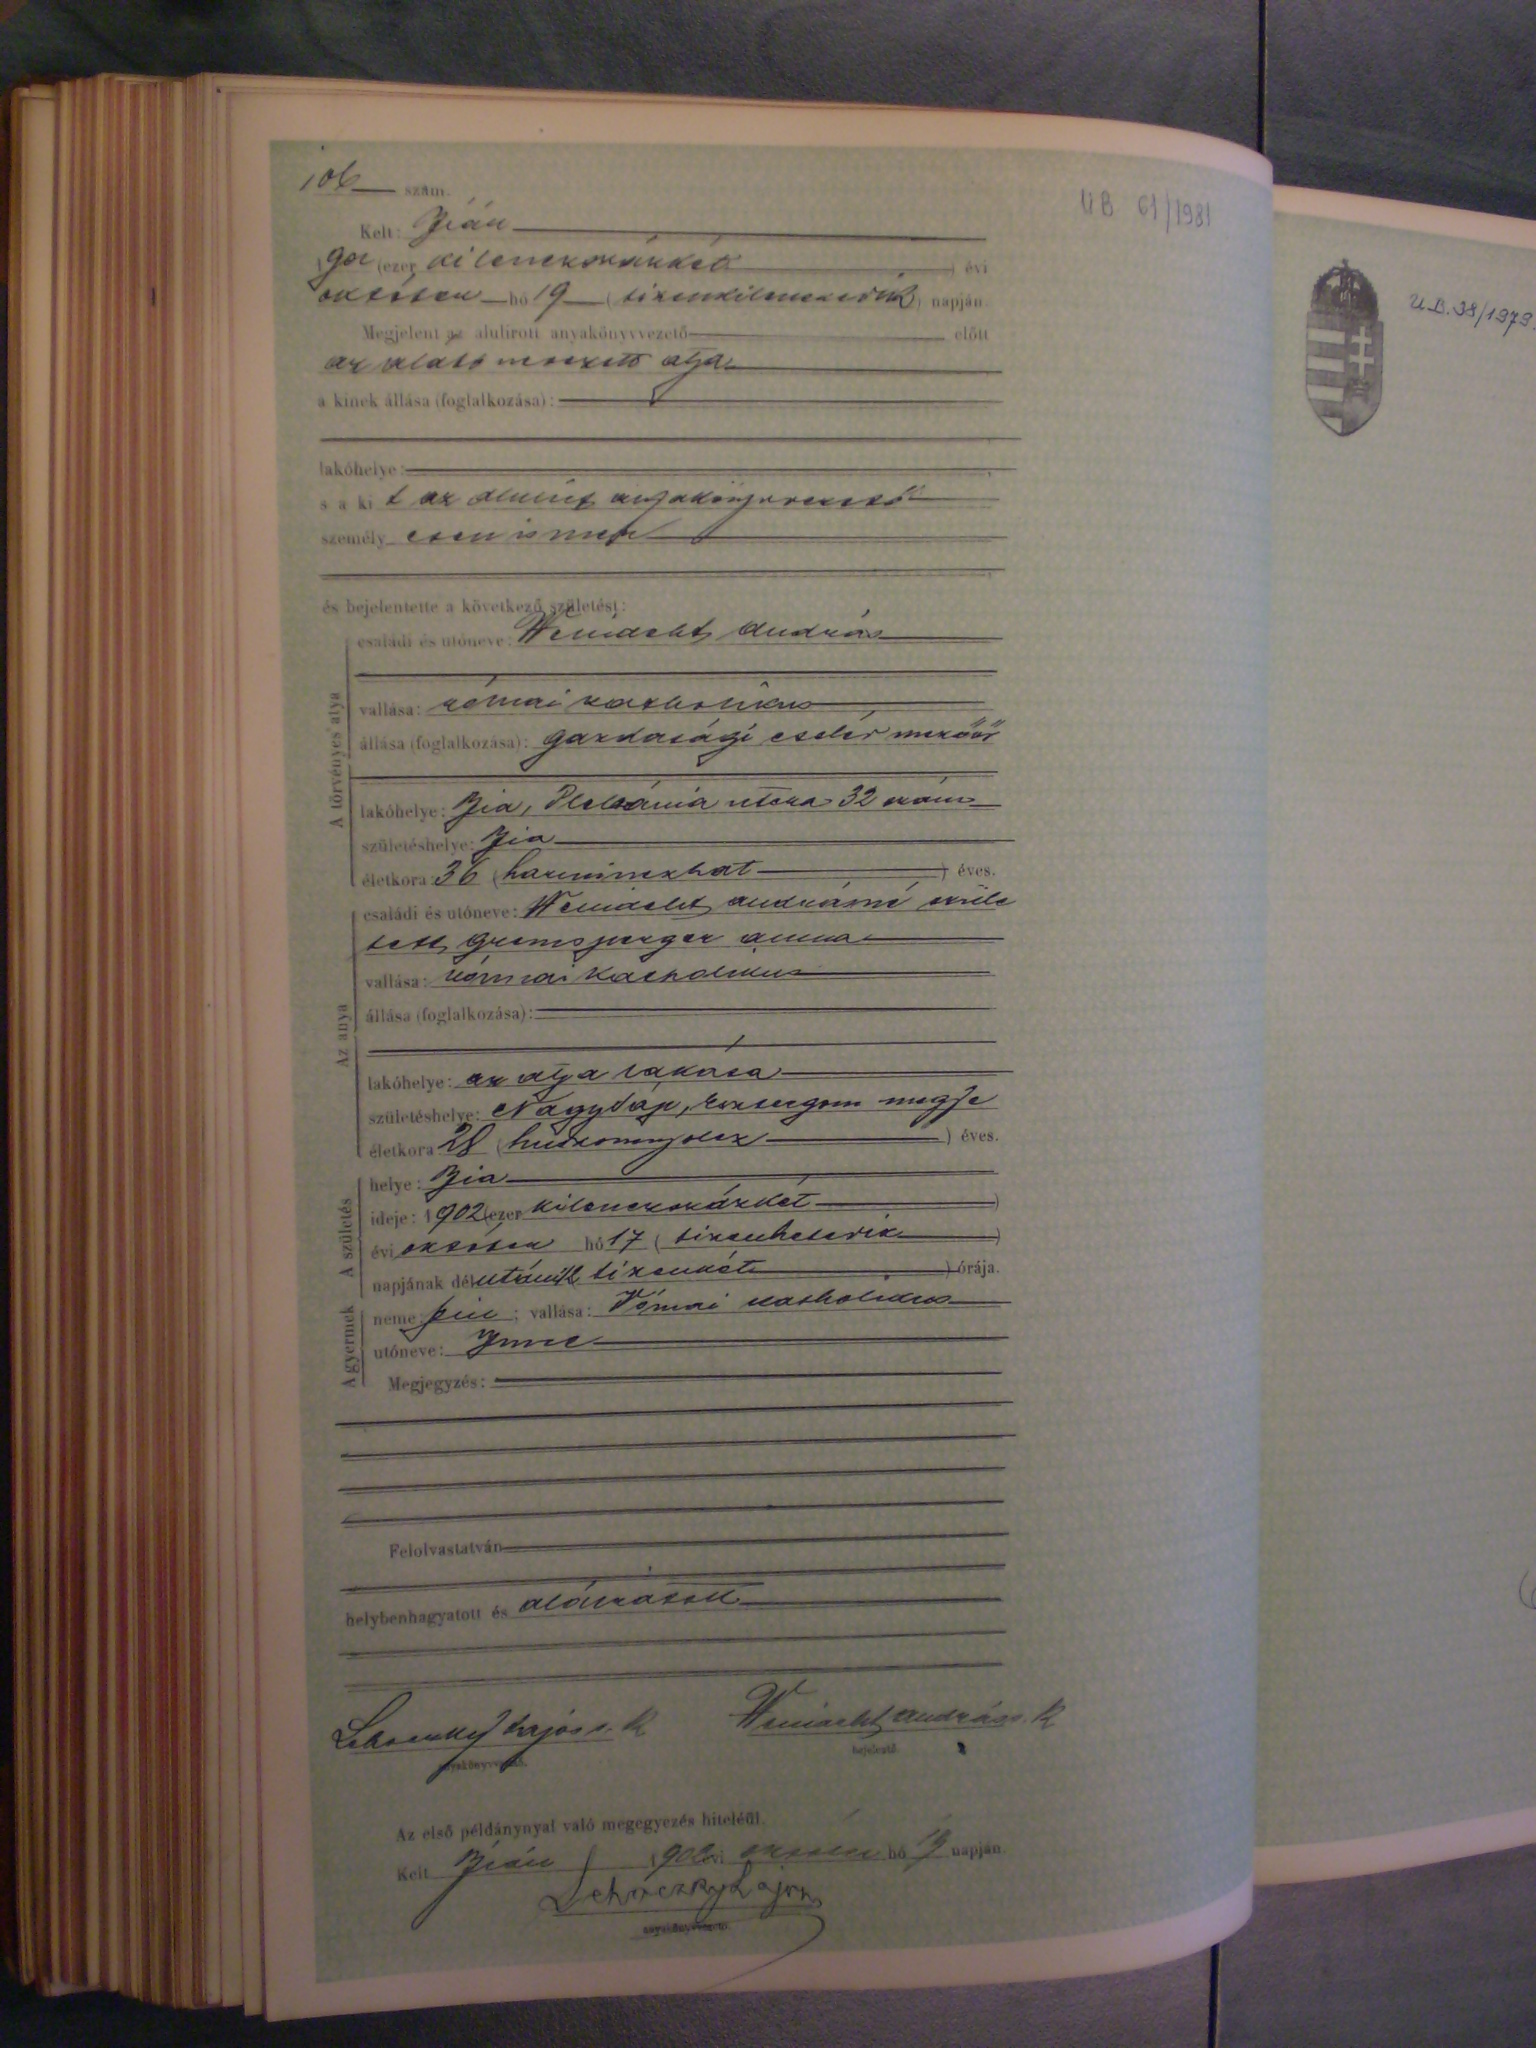 106 szám.
ÜB 61/1981
Kelt: Bián
1902 (ezer kilenczszázkét) évi
október hó 19 (tizenkilenczedik) napján.
Megjelent az alulirott anyakönyvvezető előtt
az alább nevezett atya
a kinek állása (foglalkozása):
lakóhelye:
s a kit az alulirt anyakönyvvezető
személyesen ismer
és bejelentette a következő születést:
A törvényes atya
családi és utóneve: Weinacht András
vallása: római katholikus
állása (foglalkozása): gazdasági cseléd mezőőr
lakóhelye: Bia, utcza 32 szám
születéshelye: Bia
életkora: 36 (harminczhat) éves.
Az anya
családi és utóneve: Weinacht Andrásné szüle
tett Anna
vallása: római katholikus
állása (foglalkozása):
lakóhelye: az atya lakása
születéshelye: Nagysáp, Esztergom megye
életkora: 28 (huszonnyolcz) éves.
A születés
helye: Bia
ideje: 1902 (ezer kilenczszázkét)
évi október hó 17 (tizenhetedik)
napjának délutáni 12 tizenkét) órája.
A gyermek
neme: fiu; vallása: Római katholikus
utóneve: Imre
Megjegyzés:
Felolvastatván
helybenhagyatott és aláiratott
Lehoczky Lajos s. k
Weinacht András s. k
anyakönyvvezető.
bejelentő
Az első példánynyal való megegyezés hiteléül.
Kelt Bián 1902 évi október hó 19 napján.
Lehoczky Lajos
anyakönyvvezető.
U.B. 38/1979.